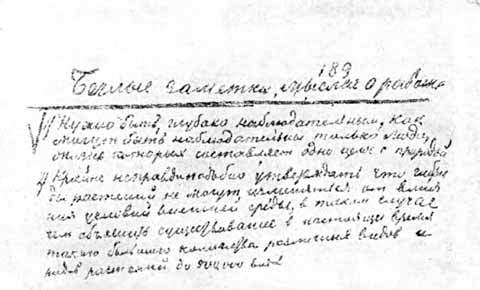 189
Беглые заметки, мысли о
Нужно быть глубоко наблюдательным, как
могут быть наблюдательны только люди,
жизнь которых составляет одно целое с природой
Крайне неправдоподобно утверждать что
растений не могут изменяться от влия
ния условий внешней среды, в таком случае
чем объяснить существование в настоящее время
такого большого количества различных видов и
растений до 300,000